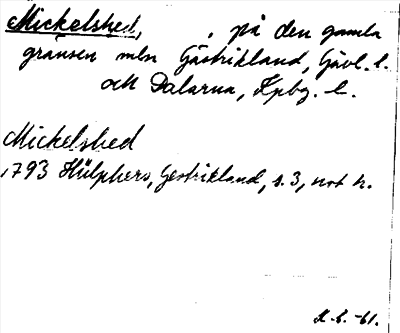 Mickelshed, , på den gamla
gränsen mln Gästrikland, Gävl. l.
och Dalarna, Kpbg. l.
Mickelshed
1793 Hülphers, Gestrikland, s. 3, not h.